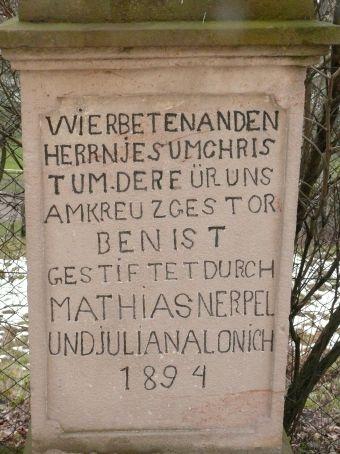 WIERBETENANDEN
HERRNJESUMCHRIS
TUM.DEREÜRUNS
AMKREUZGESTOR
BENIST
GESTIFTETDURCH
MATHIASNERPEL
UNDJULIANALONICH
1894